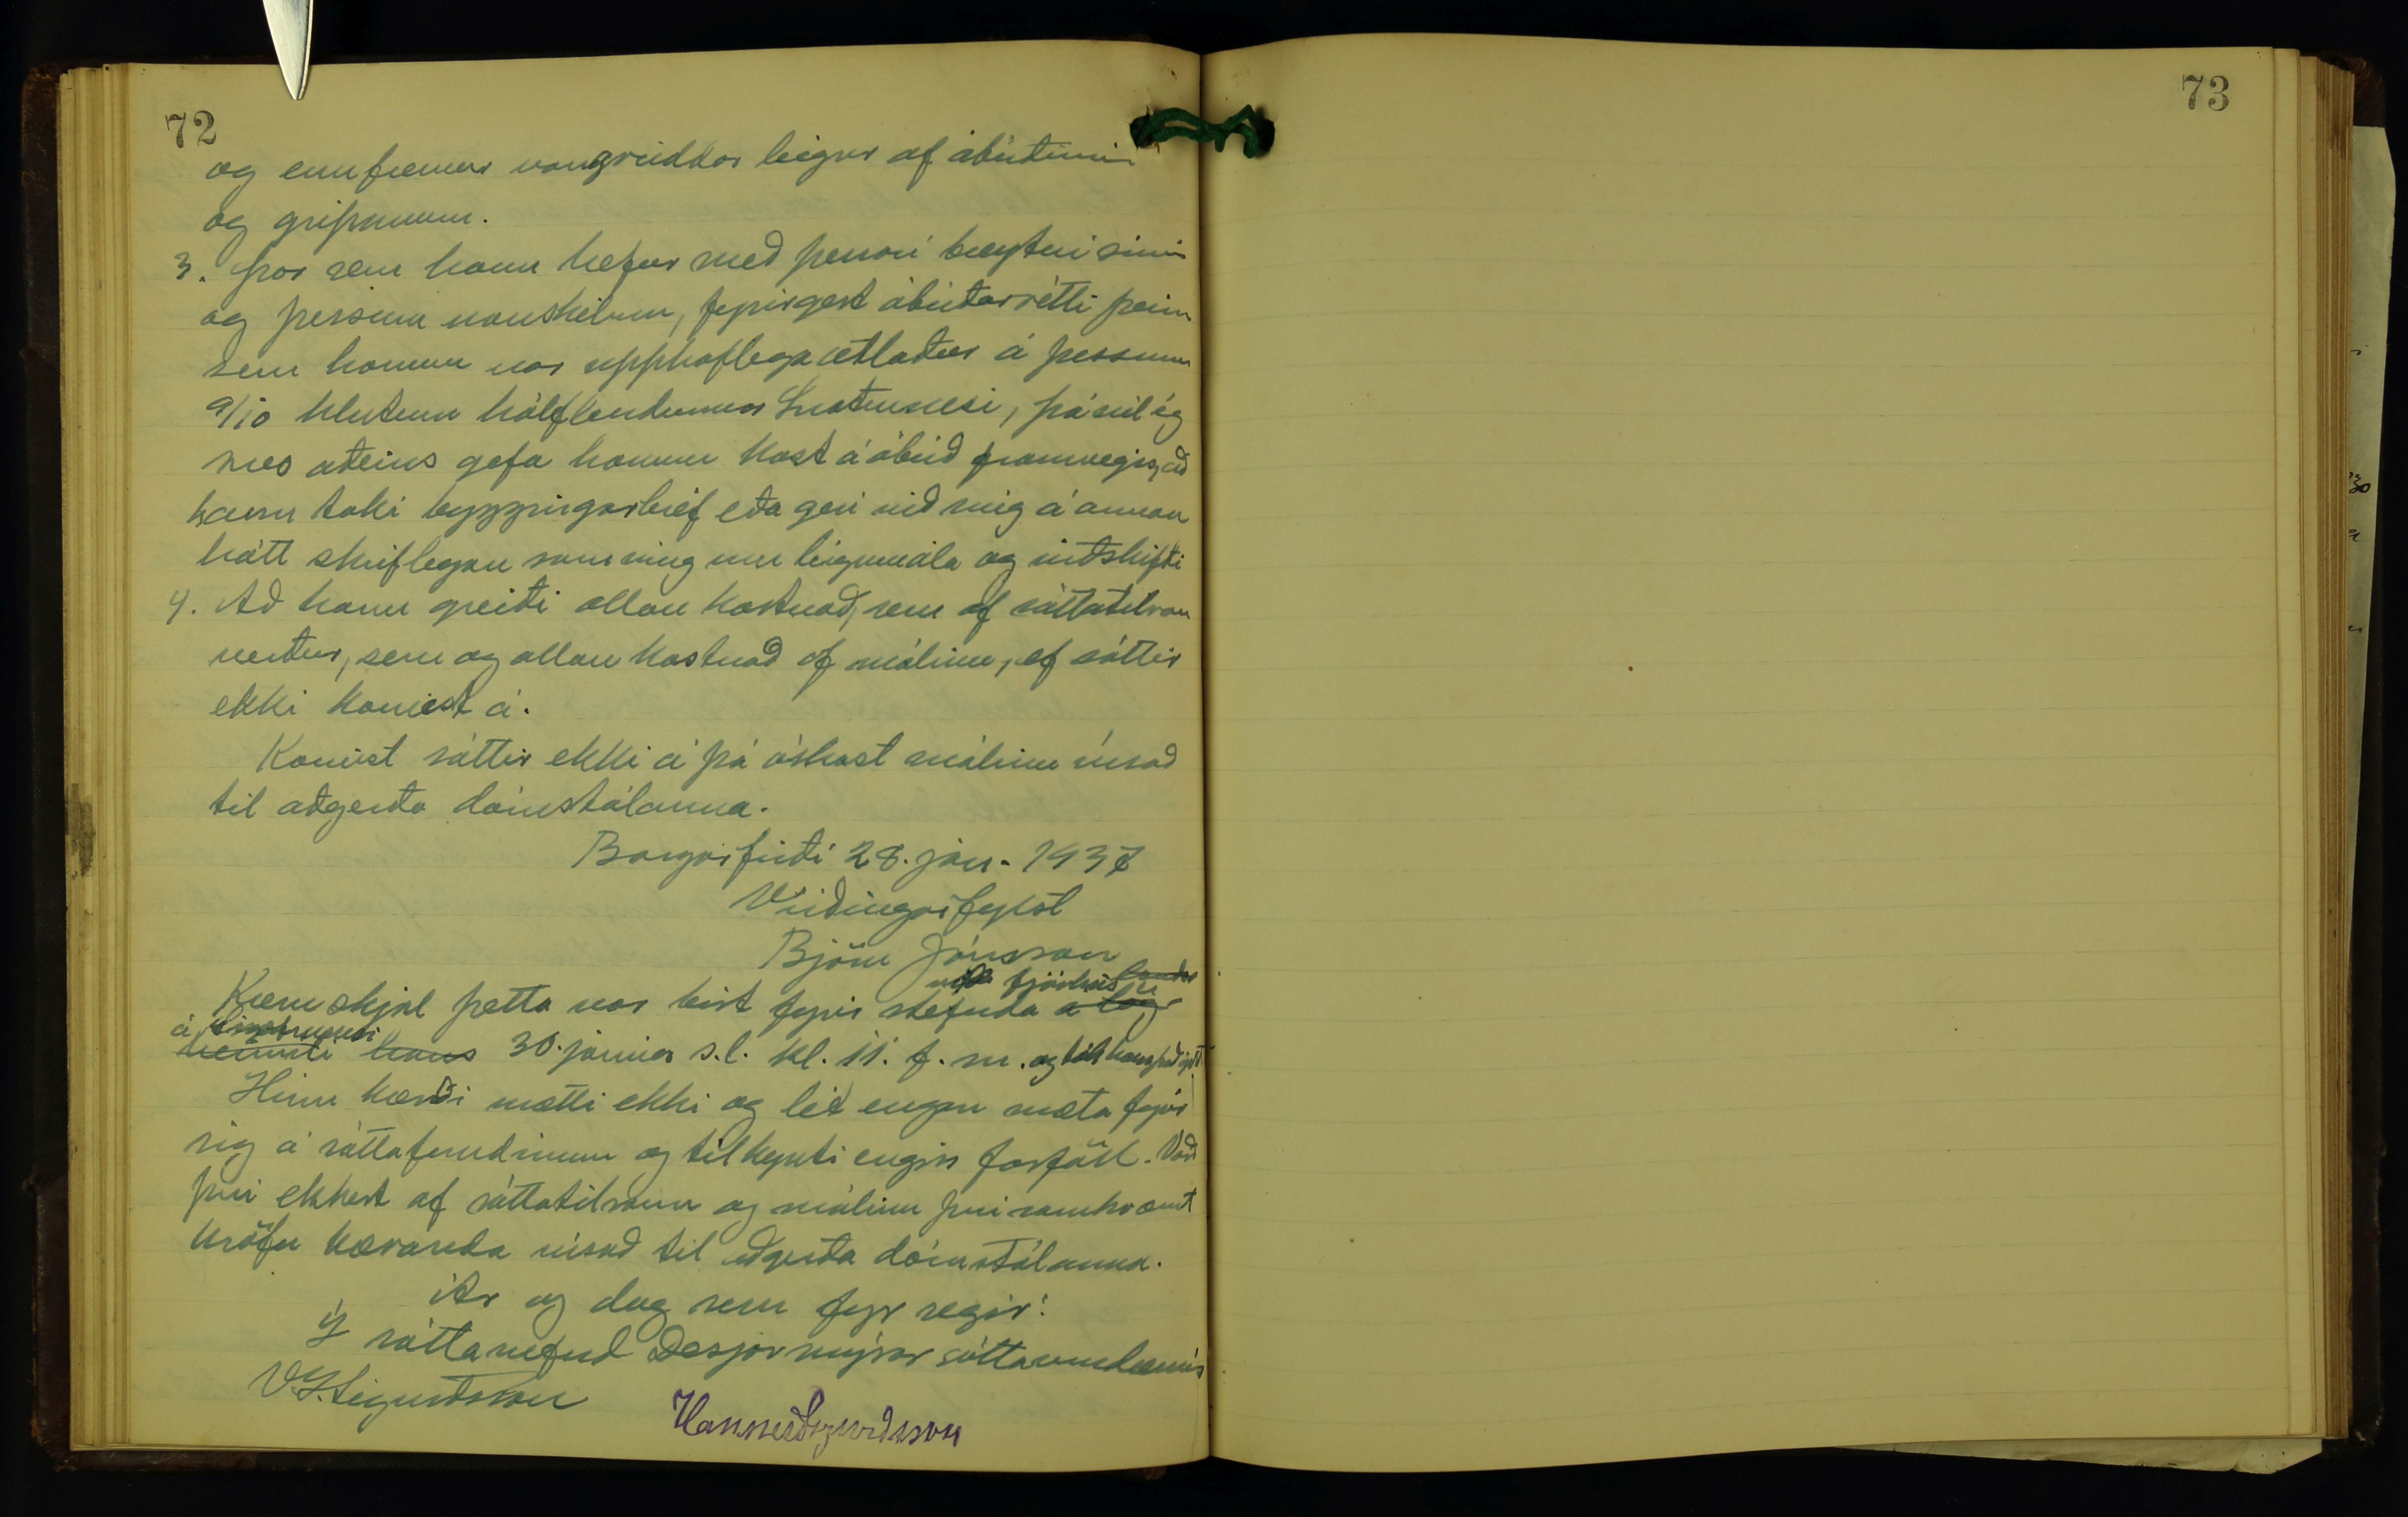 72
og ennfremur vangreiddar leigur af ábúðinni
og gripunum.
3. Þar sem hann hefur með þessari breytni sinni
og þessum vanskilum, fyrirgert ábúðarrétti þeim
sem honum var upphaflega ætlaður á þessum
9/10 hlutum hálflendunnar Snotrunesi, þá vil ég
nú aðeins gefa honum kost á ábúð framvegis, að
hann taki byggingarbréf eða geri við mig á annan
hátt skriflegan samning um leigumála og viðskifti
4. Að hann greiði allan kostnað, sem af sáttatilraun
verður, sem og allan kostnað af málinu, ef sáttir
ekki komist á.
Komist sáttir ekki á þá óskast málinu vísað
til aðgerða dómstólanna.
Borgarfirði 28. jan. 1937
Virðingarfyllst
Björn Jónsson
við fjárhús
Kæruskjal þetta var birt fyrir stefnda
á Snotrunesi
heimili hans 30. janúar s.l. kl. 11. f. m. og
Hinn kærði mætti ekki og lét engan mæta fyrir
sig á sáttafundinum og tilkynti engin forföll. Varð
því ekkert af sáttatilraun og málinu því samkvæmt
kröfu kæranda vísað til aðgerða dómstólanna.
Ár og dag sem fyr segir:
Í sáttanefnd Desjarmýrar sáttaumdæmis
VJ. Sigurðsson
Hannes Sigurðsson
73